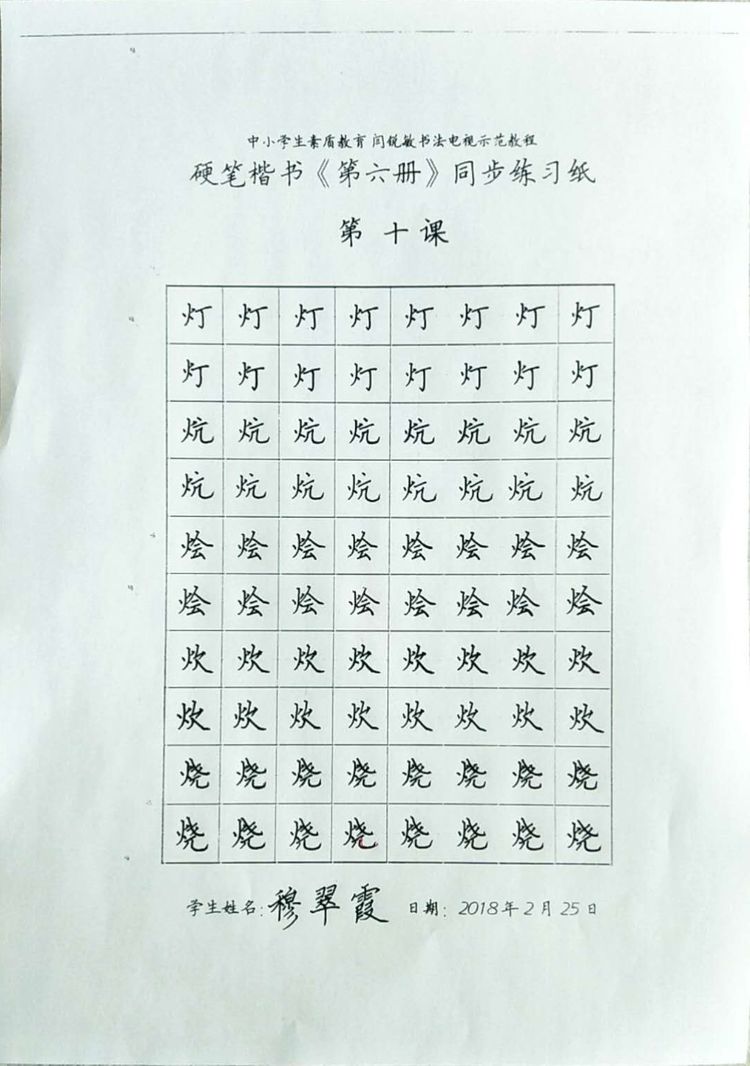 中小学生素质教育闫锐敏书法电视示范教程
硬笔楷书《第六册》同步练习纸
第十课
灯灯灯灯灯灯灯灯
灯灯灯灯灯灯灯灯
炕炕炕炕炕炕炕炕
炕炕炕炕炕炕炕炕
烩烩烩烩烩烩烩烩
烩烩烩烩烩烩烩烩
炊炊炊炊炊炊炊炊
炊炊炊炊炊炊炊炊
烧烧烧烧烧烧烧烧
烧烧烧烧烧烧烧烧
学生姓名:穆翠霞 日期:2018年2月25日